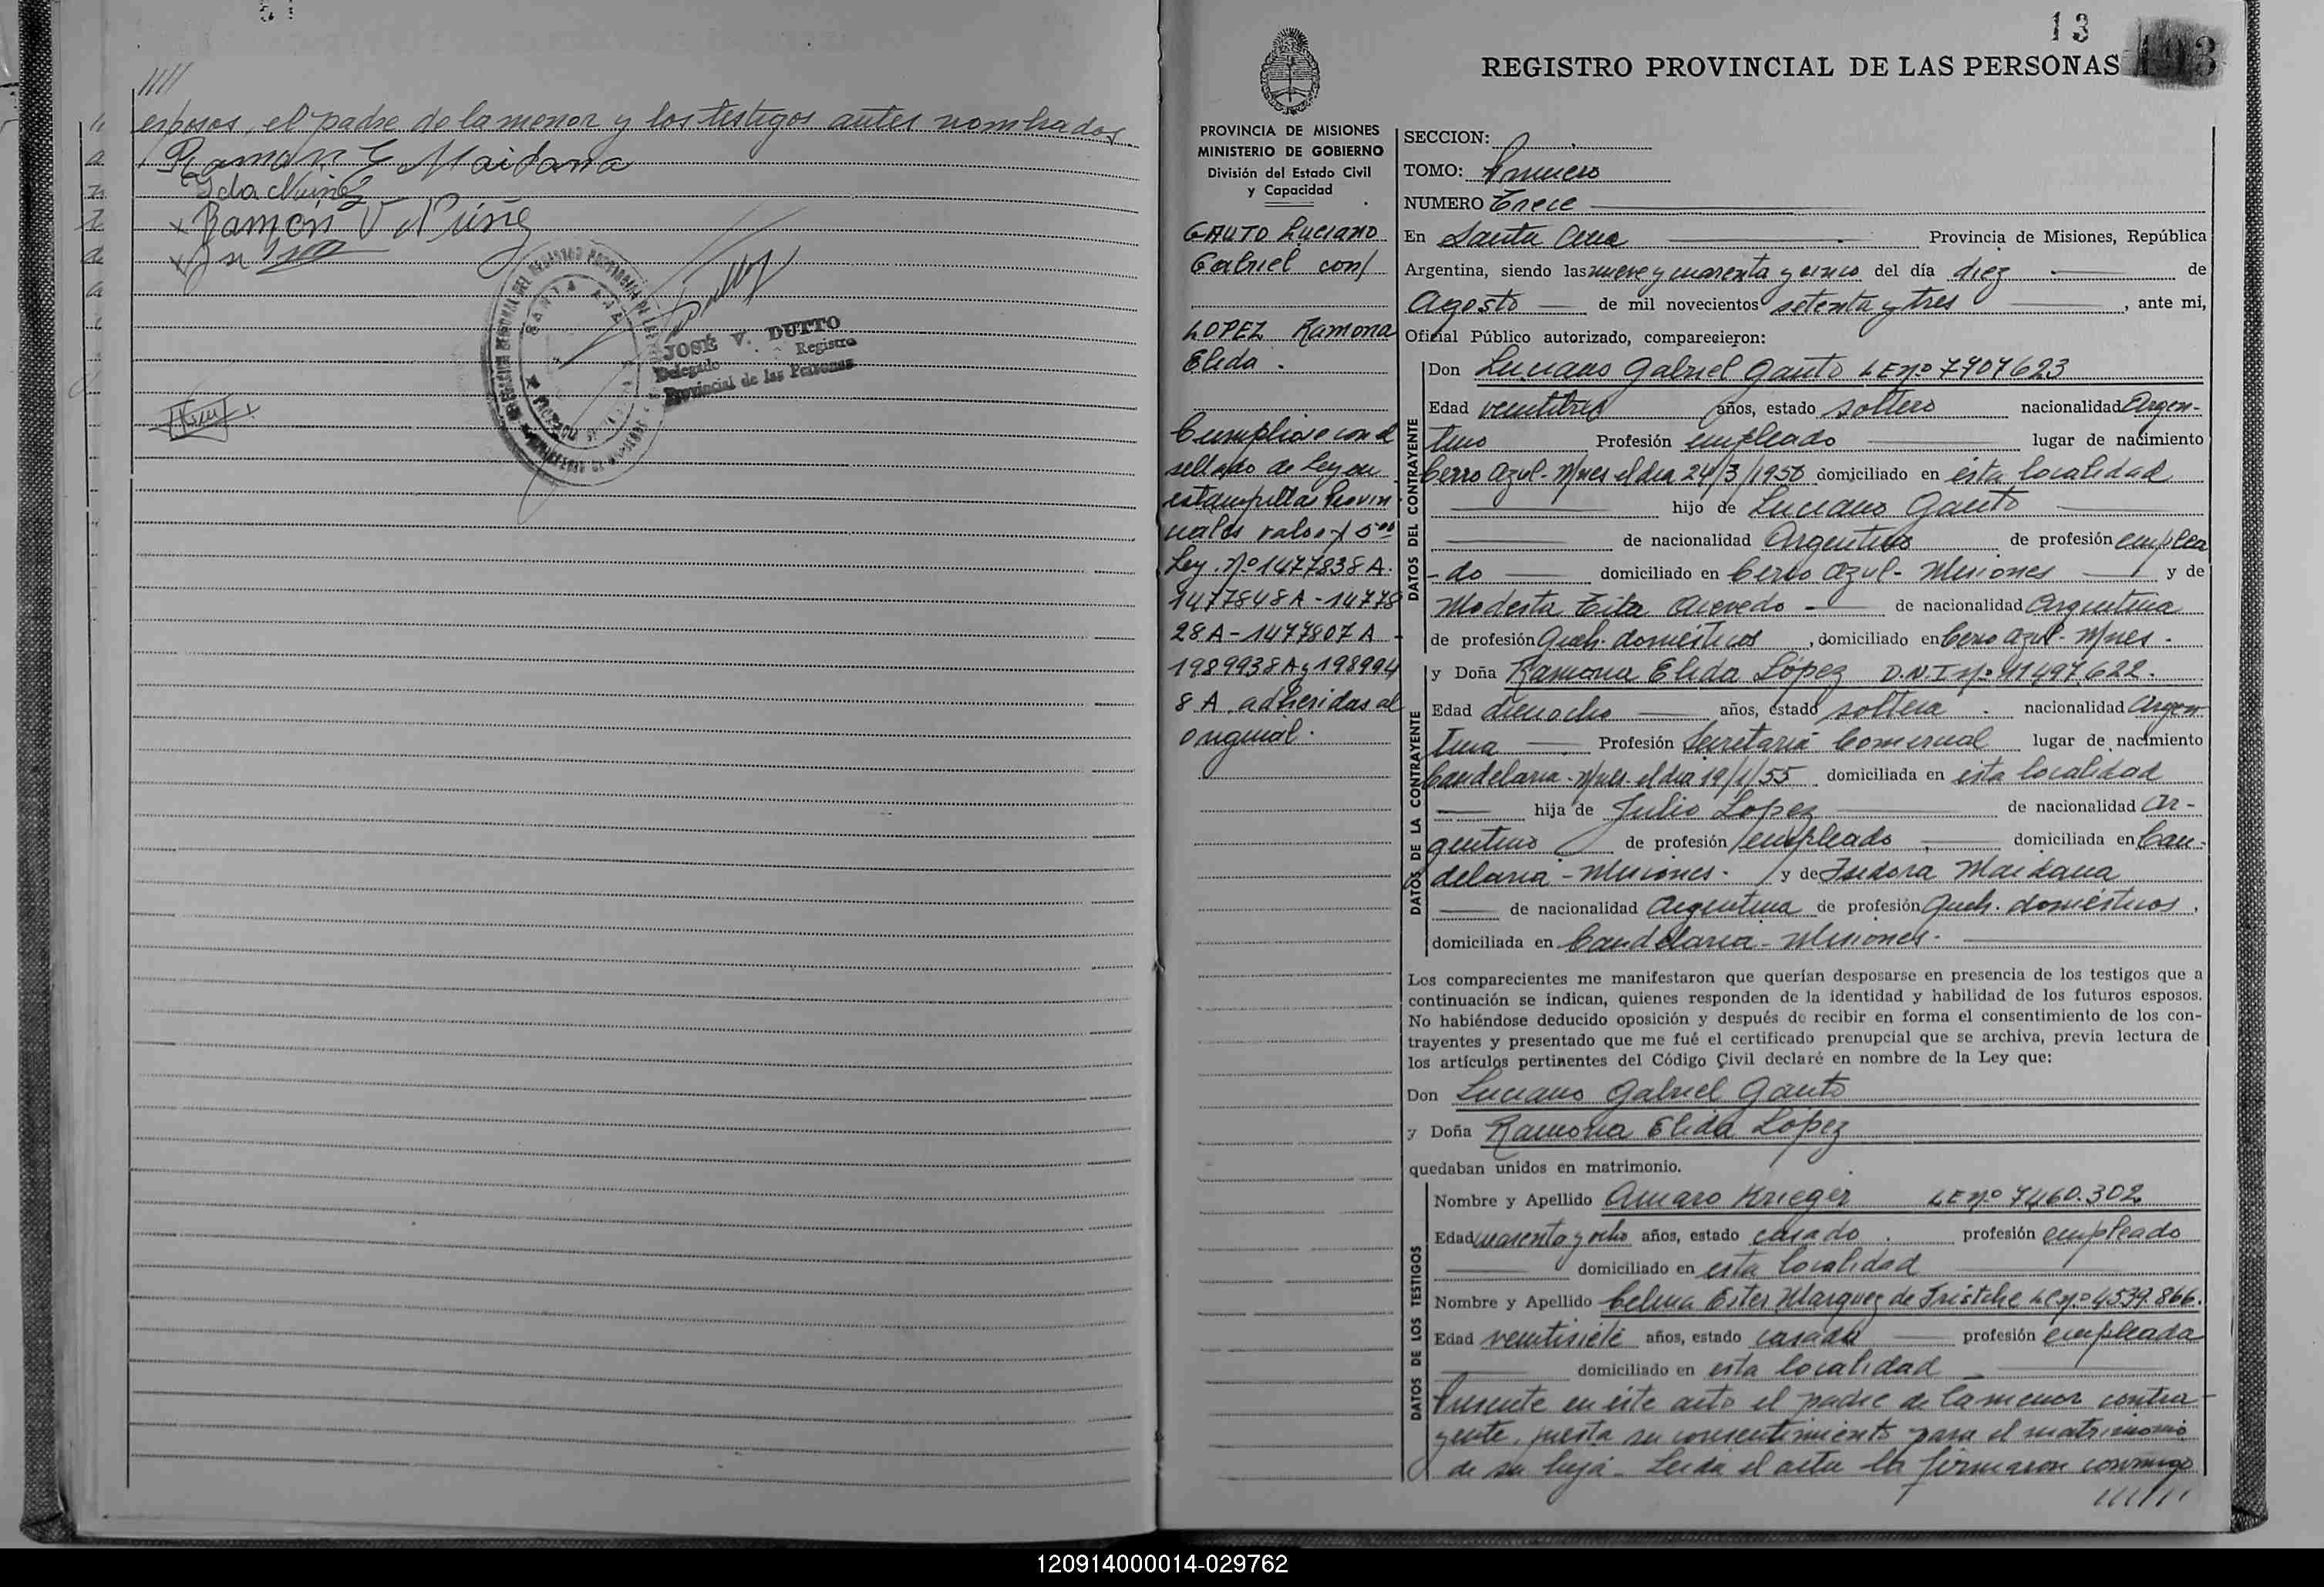 ////
esposos, el padre de la menor y los testigos antes nombrados.
Ramon E Maidana
Ramón V Núñez
SANTA ANA
JOSÉ V. DUTTO
Delegado Registro
Provincial de las Personas
13
REGISTRO PROVINCIAL DE LAS PERSONAS
PROVINCIA DE MISIONES
MINISTERIO DE GOBIERNO
División del Estado Civil
y Capacidad
GAUTO Luciano
Gabriel con/
LOPEZ Ramona
Elida.
Cumpliose con el
sellado de ley en
estampillas Provin
ciales valor $ 5.00
Ley. Nº 1477838A.
1477848A - 14778
28A - 1477807A -
1989938A y 198994
8 A. adheridas al
original.
SECCION:
TOMO: Primero
NUMERO Trece
En Santa Ana Provincia de Misiones, República
Argentina, siendo las nueve y cuarenta y cinco del día diez de
Agosto de mil novecientos setenta y tres, ante mi,
Oficial Público autorizado, comparecieron:
DATOS DEL CONTRAYENTE
Don Luciano Gabriel Gauto LE nº 7907623
Edad veintitres años, estado soltero nacionalidad Argen-
tino Profesión empleado lugar de nacimiento
Cerro Azul - Mnes el dia 24/3/1950 domiciliado en ésta localidad
hijo de Luciano Gauto
de nacionalidad Argentino de profesión emplea
-do domiciliado en Cerro Azul - Misiones y de
Modesta Tita Acevedo - de nacionalidad Argentina
de profesión Queh. domésticos, domiciliado en Cerro Azul - Mnes.
DATOS DE LA CONTRAYENTE
y Doña Ramona Elida López D.N.I nº 11497.622.
Edad dieciocho años, estado soltera nacionalidad Argen
tina Profesión Secretaria Comercial lugar de nacimiento
Candelaria - Mnes. el dia 19/1/55 domiciliada en ésta localidad
hija de Julio Lopez de nacionalidad Ar-
gentino de profesión empleado domiciliada en Can-
delaria - Misiones. y de Isidora Maidana
de nacionalidad Argentina de profesión Queh. domésticos,
domiciliada en Candelaria - Misiones.
Los comparecientes me manifestaron que querían desposarse en presencia de los testigos que a
continuación se indican, quienes responden de la identidad y habilidad de los futuros esposos.
No habiéndose deducido oposición y después de recibir en forma el consentimiento de los con-
trayentes y presentado que me fué el certificado prenupcial que se archiva, previa lectura de
los artículos pertinentes del Código Civil declaré en nombre de la Ley que:
Don Luciano Gabriel Gauto
y Doña Ramona Elida López
quedaban unidos en matrimonio.
DATOS DE LOS TESTIGOS
Nombre y Apellido Amaro Krieger LE nº 7460.302
Edad cuarenta y ocho años, estado casado. profesión empleado
domiciliado en esta localidad
Nombre y Apellido Celina Ester Marquez de Tristche LC nº 4539.866.
Edad veintisiete años, estado casada profesión empleada
domiciliado en esta localidad
Presente en éste acto el padre de la menor contra-
yente, presta su consentimiento para el matrimonio
de su hija - Leida el acta la firmaron conmigo
//////
120914000014-029762